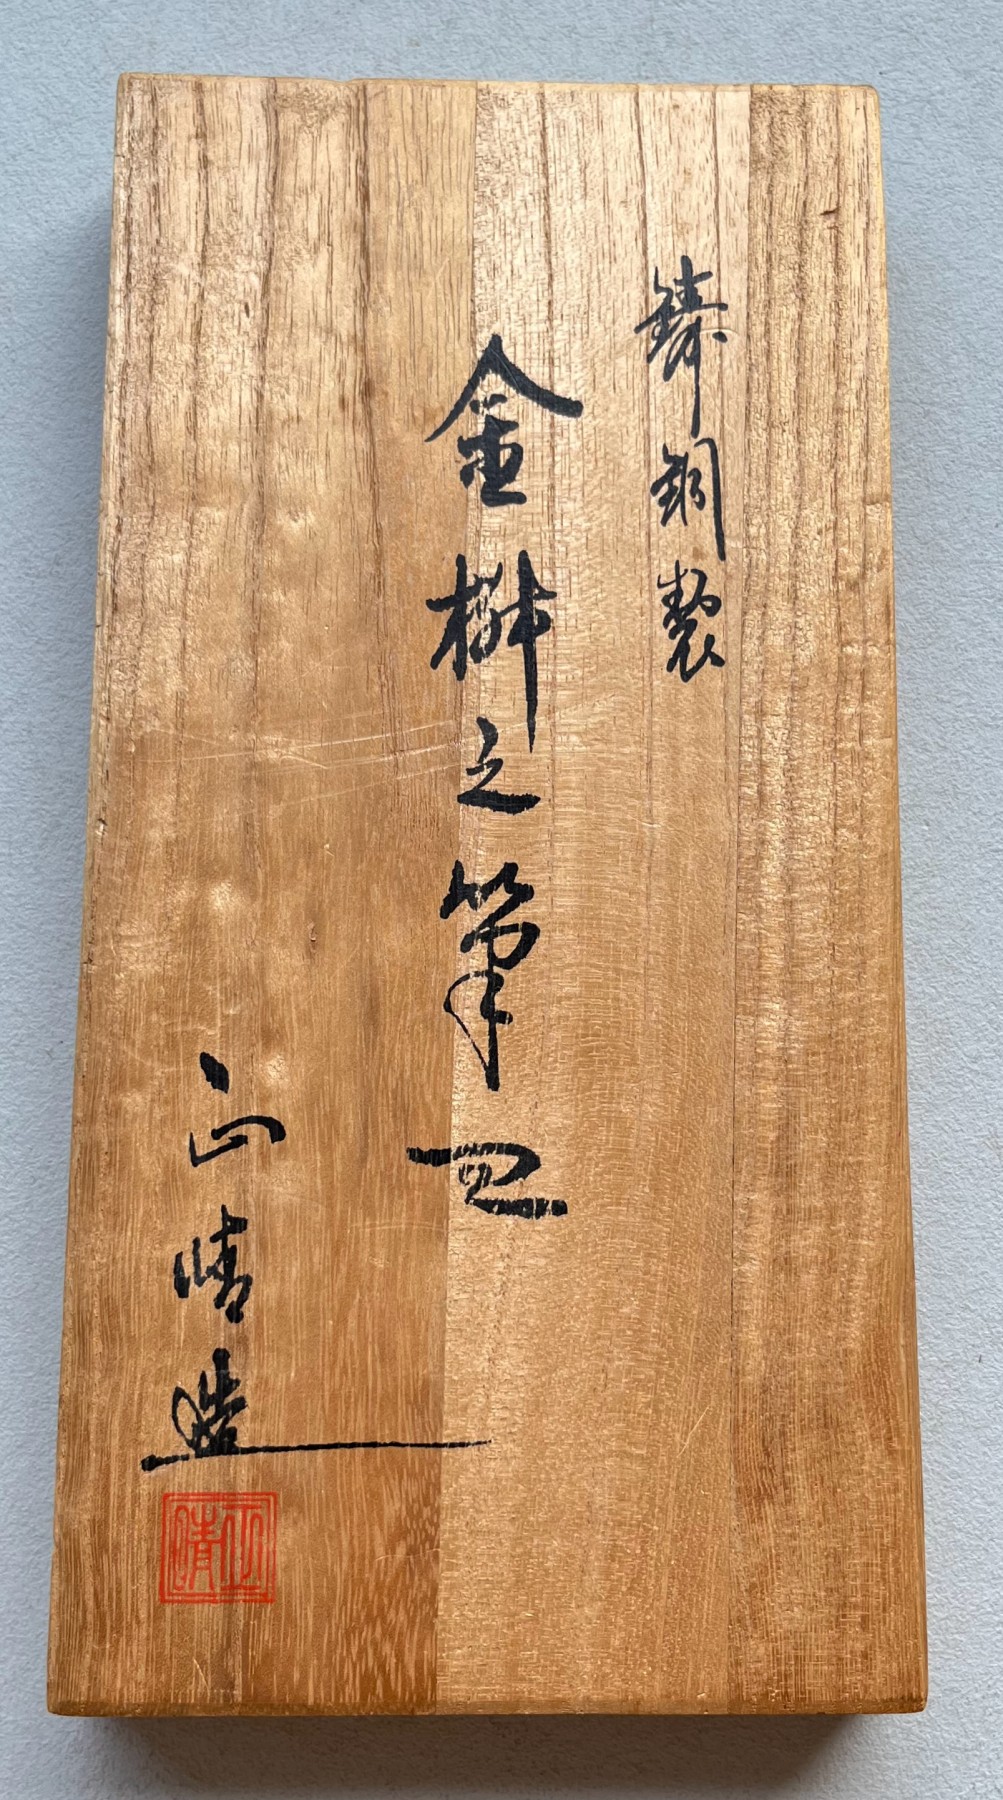 鋳銅製
金桝之筆皿
正晴造
正晴